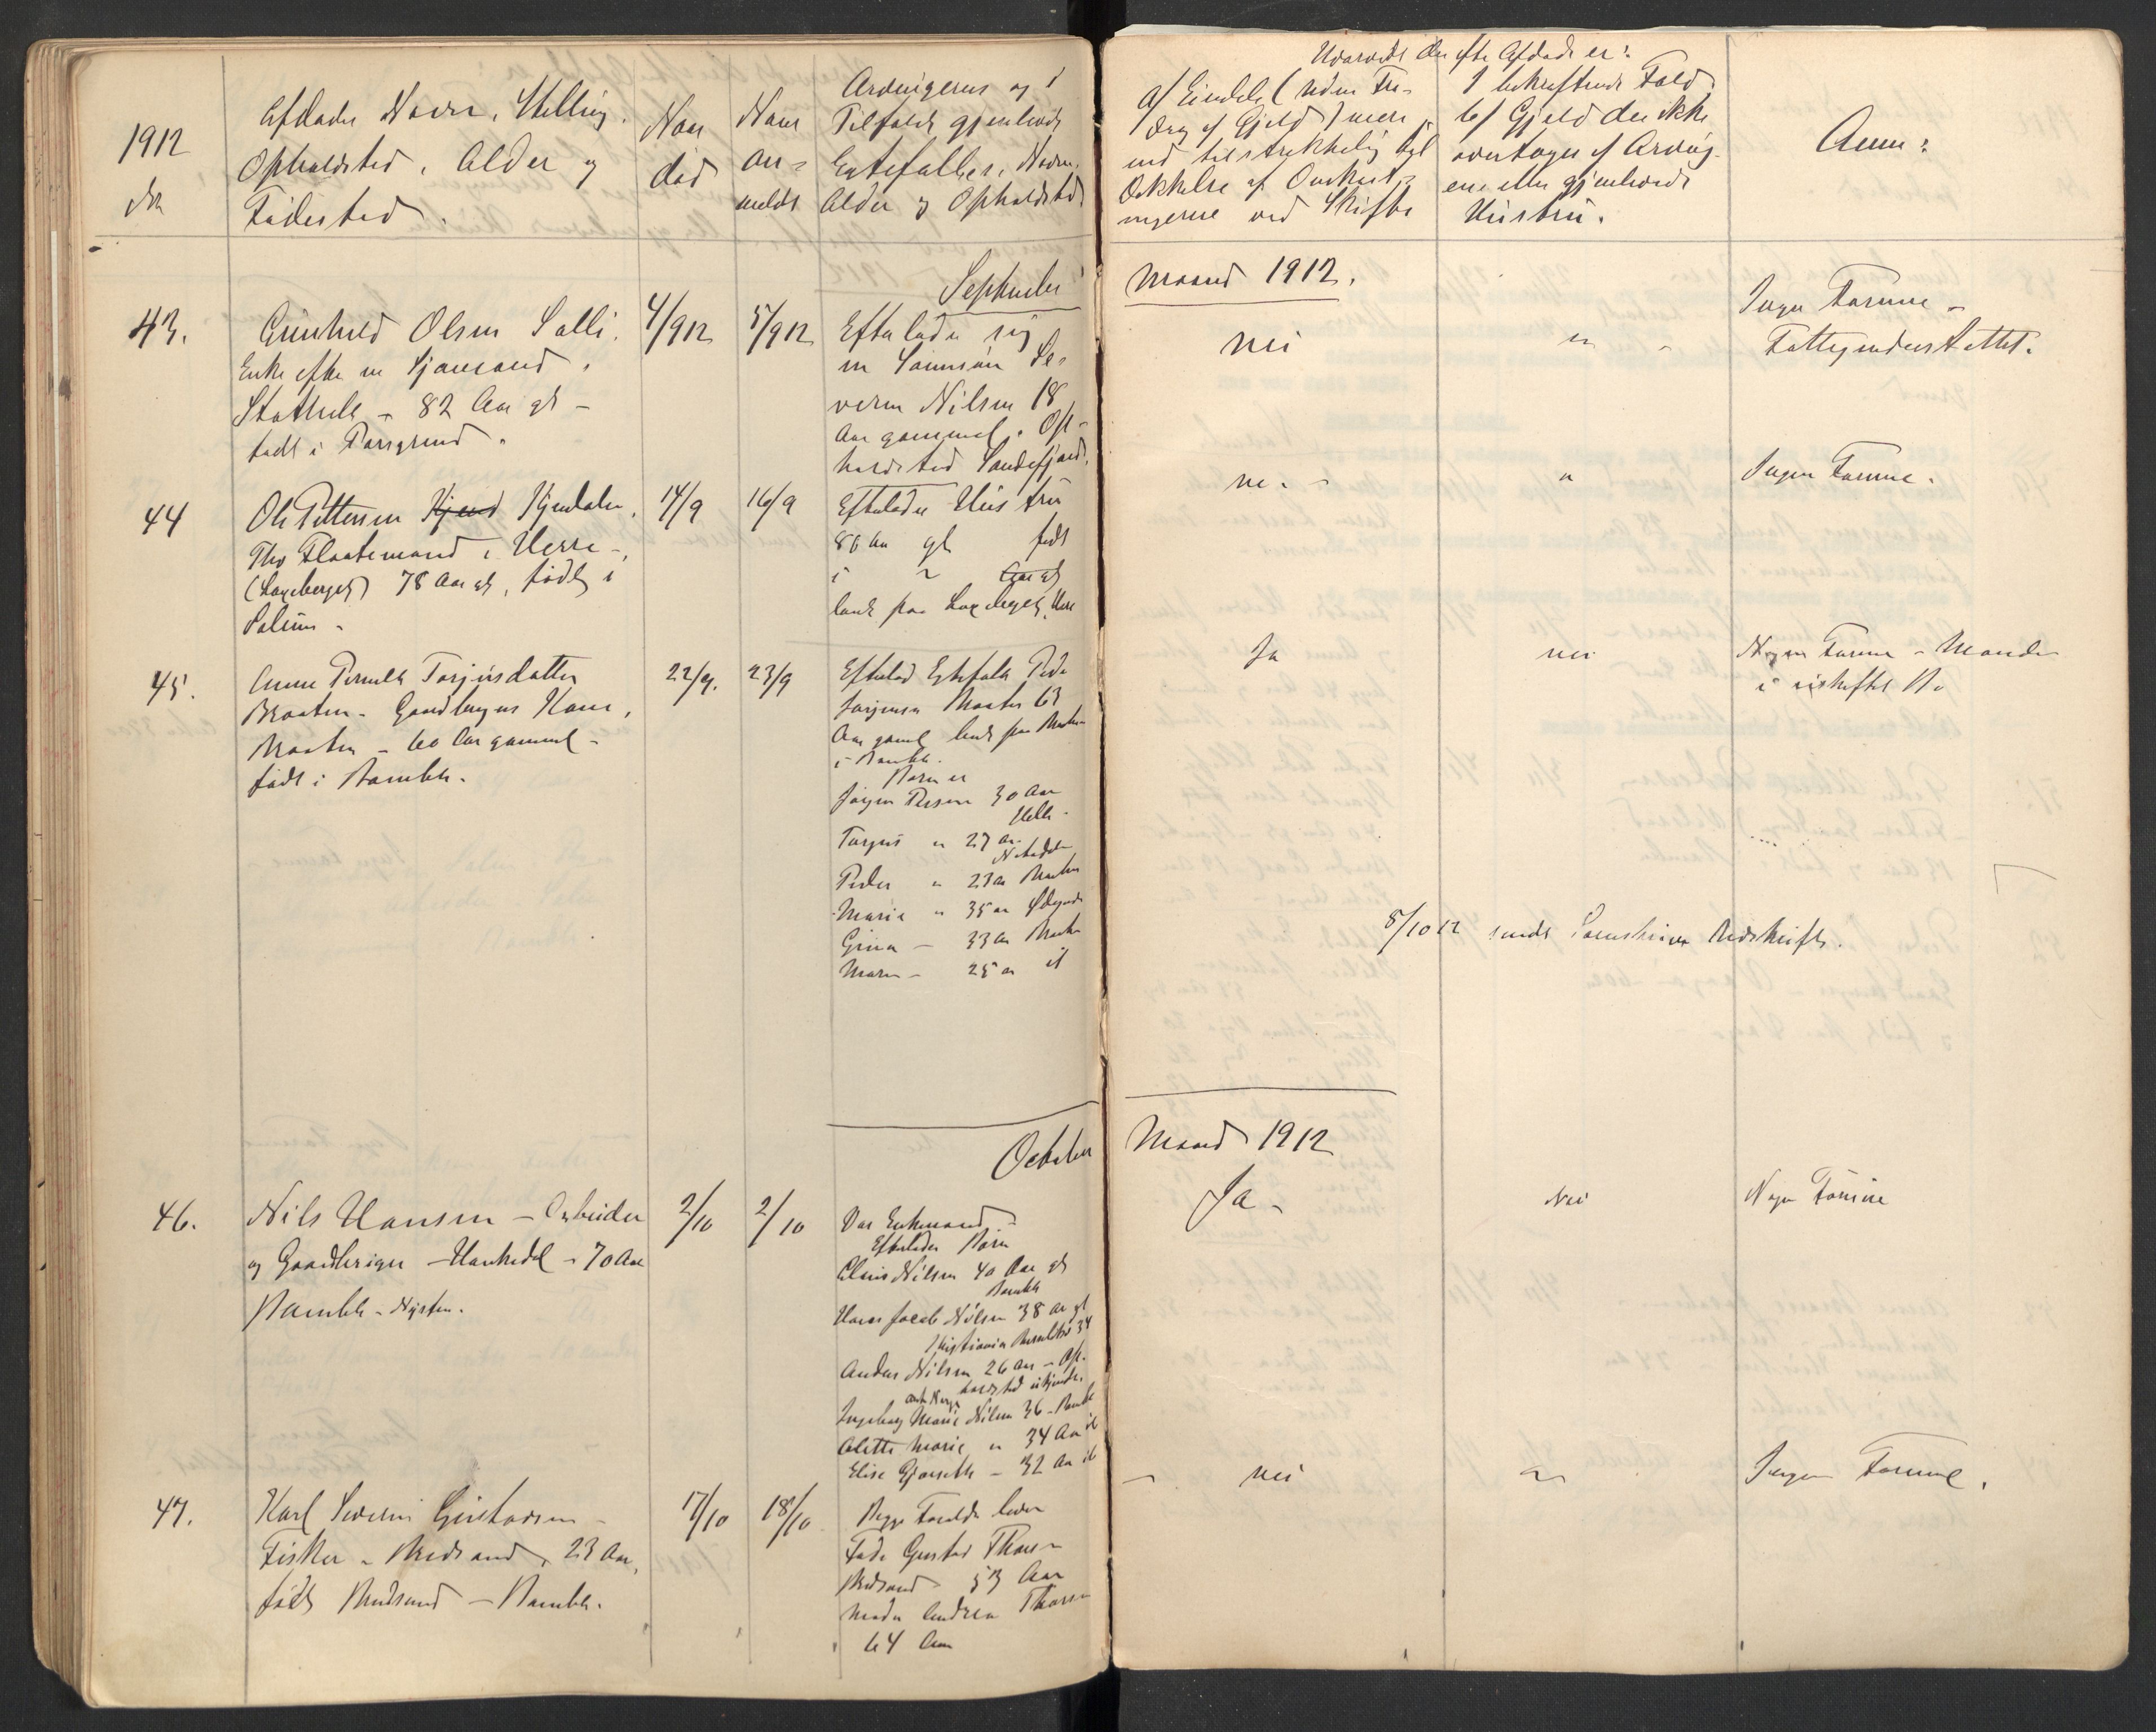 1912
No
Afdødes Navn, Stilling,
Opholdsted, Alder og
Fødested.
Naar
død
Naar
an-
meldt
Arvingernes og i
Tilfælde gjenlevende
Ægtefælles, Navn,
Alder og Opholdsted
Hvorvidt den efter Afdøde er:
a/ Eiendele (uden Fra-
drag af Gjæld) mere
end tilstrækkelig til
Dækkelse af Omkost-
ningerne ved Skifte
I bekræftende Fald
b/ Gjæld der ikke
overtages af Arving-
ene eller gjenlevende
Hustru.
Anm:
September
Maaned 1912.
43.
Gunhild Olsen Salli.
Enke efter en Sjømand,
Stathelle - 82 Aar gl -
født i Porsgrund.
4/9 12
5/9 12
Efterlader sig
en Sønnesøn Se-
verin Nilsen 18
Aar gammel. Op-
holdsted Sandefjord.
nei
"
Ingen Formue -
Fattigunderstøttet.
44
Ole Pettersen Kjend Kjendalen,
Flaatemand i Herre -,
(Laxeberget) 78 Aar gl, født i
Solum -
14/9
16/9
Efterlader Hustru
86 Aar gl født
i " Aar gl
paa Laxeberget, Herre
nei -
"
Ingen Formue.
45.
Anne Pernille Torjusdatter
Braaten - Gaardbrugers Kone,
Braaten - 60 Aar gammel -
født i Bamble.
22/9.
23/9
Efterlod Egtefælle Peder
Jørgensen Braaten 63
Aar gaml paa Braaten
i Bamble.
Børn er
Jørgen Pedersen 30 Aar
Helle -
Torjus " 27 Aar
Peder " 23 Aar Braaten
Maria " 35 Aar
Gina - 33 Aar Braaten
Maren - 25 Aar il
Ja
nei
Nogen Formue - Manden
i uskiftet Bo
8/10 12 sendt Sorenskriver Udskrift.
October
Maaned 1912
46.
Nils Hansen - Arbeider
og Gaardbruger - Hankedal - 70 Aar
Bamble -
2/10
2/10
Var Enkemand -
Efterlader Børn
Nilsen 40 Aar gl
Bamble
Hans Jacob Nilsen 38 Aar gl
Kristiania 34
Anders Nilsen 26 Aar - Op-
holdsted ukjendt.
Ingeborg Marie Nilsen 36 - Bamble
Alette Marie " 34 Aar il
Elise - 32 Aar il
Ja -
Nei
Nogen Formue
47.
Karl Severin Gustavsen -
Fisker - 23 Aar,
født - Bamble.
17/10
18/10
Begge Forældre lever
Fader Gustav Thorsen
53 Aar
Moder Andrea Thorsen
64 Aar
- nei
"
Ingen Formue.